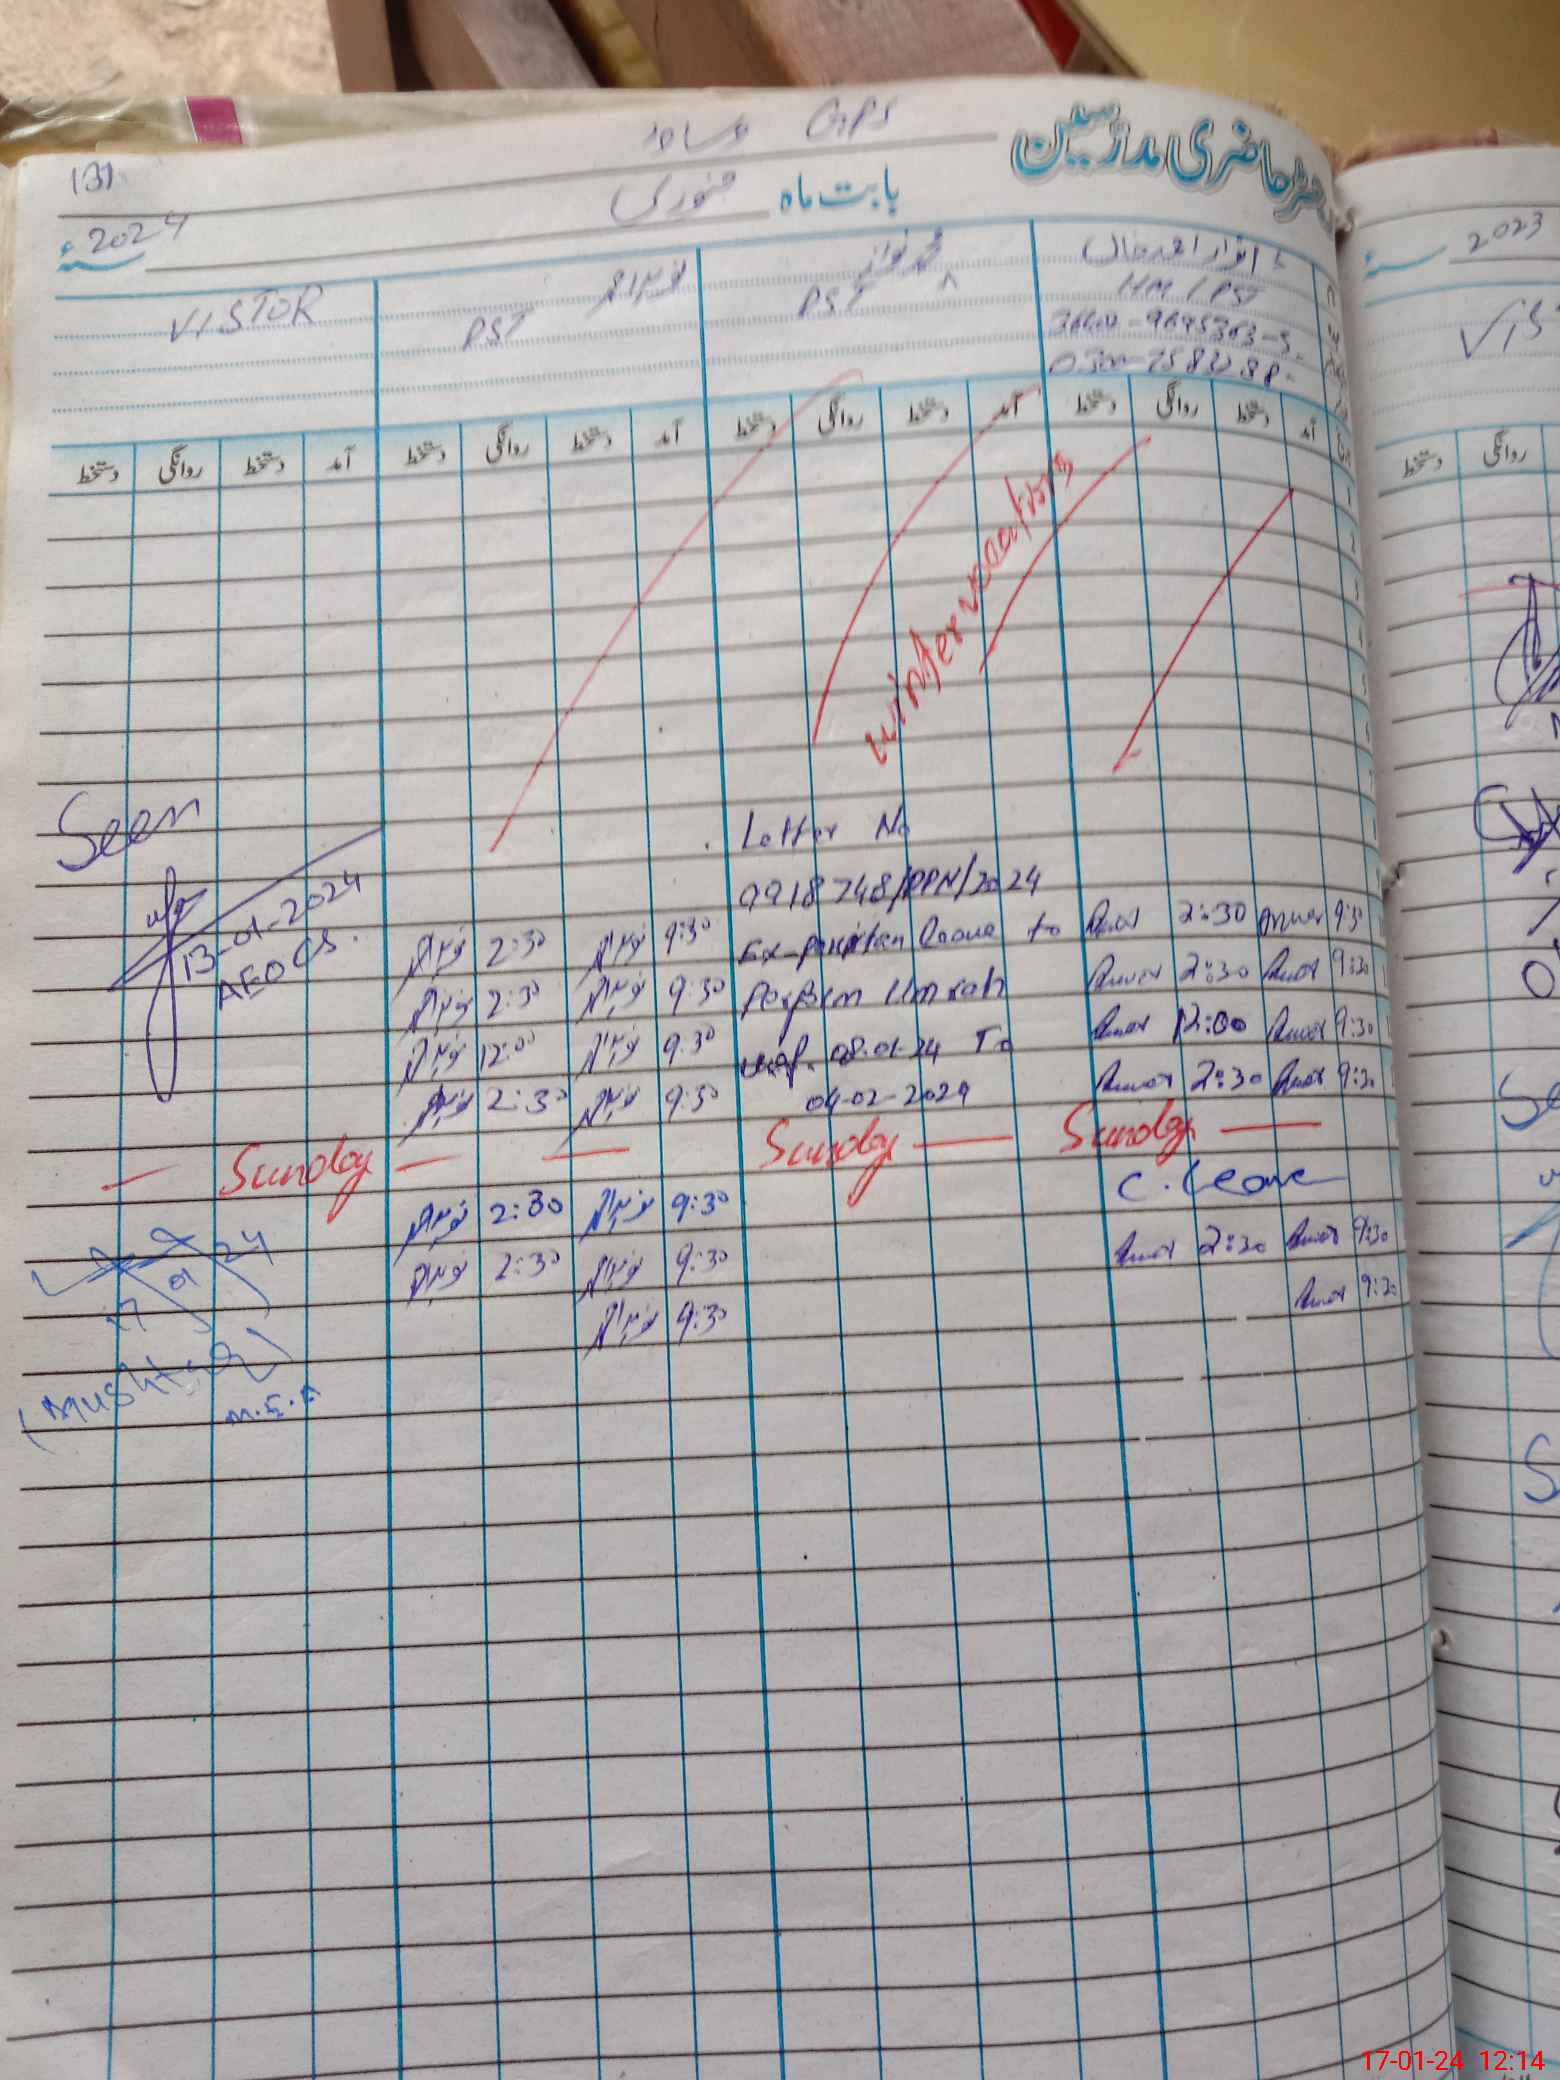 GPS
حاضری مدرسین
(3)
بابت ماہ جنوری
2024ء
2023
VISTOR
PST
محمد نواز
PST
انوار احمد خان
HM / PST
دستخط روانگی دستخط آمد دستخط روانگی دستخط آمد دستخط روانگی دستخط آمد دستخط روانگی دستخط آمد
دستخط روانگی
winter vacations
Seen
13-01-2024
AEO
Letter No
9918748/PPN/2024
Ex-pakistan Leave to
Perform Umrah
w.e.f. 08-01-24 To
04-02-2024
2:30 9:30 Anwar 2:30 Anwar 9:30
2:30 9:30 Anwar 2:30 Anwar 9:30
12:00 9:30 Anwar 12:00 Anwar 9:30
2:30 9:30 Anwar 2:30 Anwar 9:30
Sunday Sunday Sunday
2:30 9:30 C. Leave
2:30 9:30 Anwar 2:30 Anwar 9:30
9:30 Anwar 9:30
17 01 24
(Mushtaq)
M.E.A
17-01-24 12:14